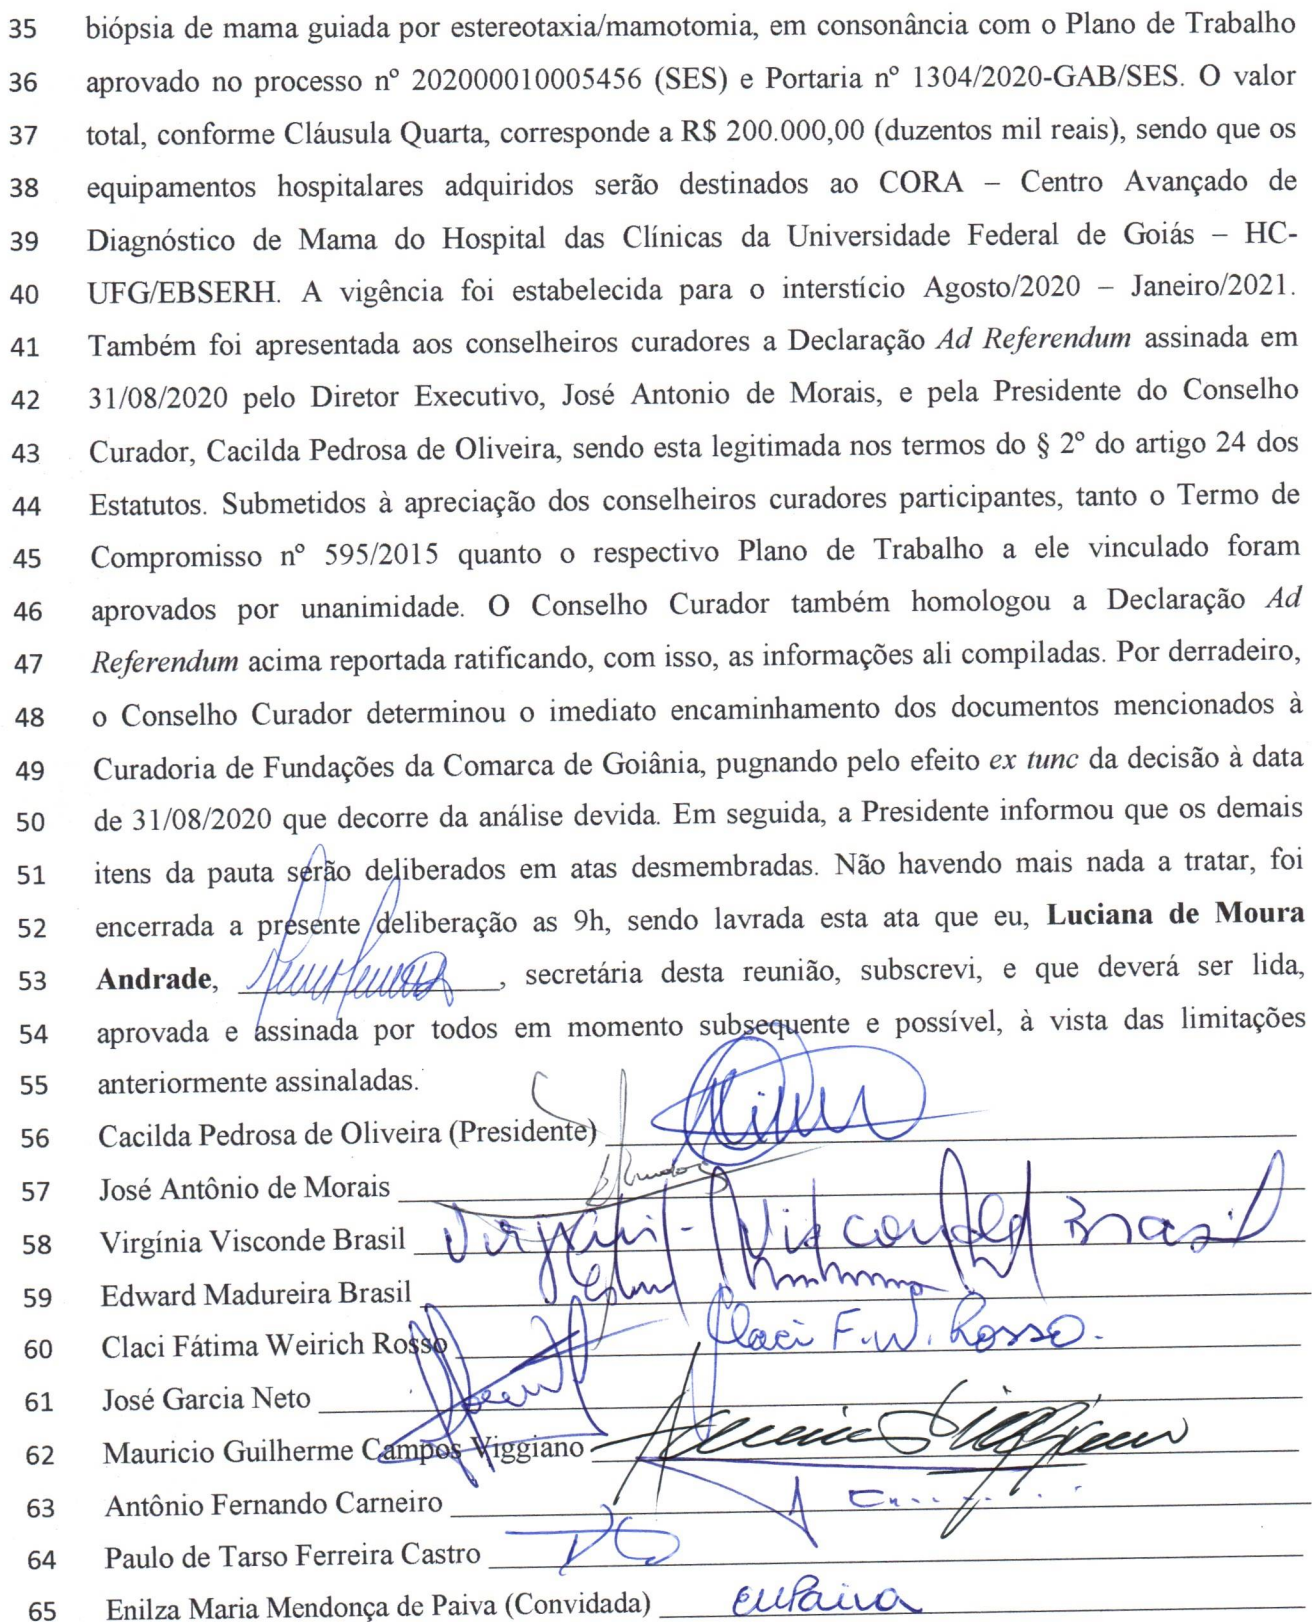 35 biópsia de mama guiada por estereotaxia/mamotomia, em consonância com o Plano de Trabalho
36 aprovado no processo nº 202000010005456 (SES) e Portaria nº 1304/2020-GAB/SES. O valor
37 total, conforme Cláusula Quarta, corresponde a R$ 200.000,00 (duzentos mil reais), sendo que os
38 equipamentos hospitalares adquiridos serão destinados ao CORA – Centro Avançado de
39 Diagnóstico de Mama do Hospital das Clínicas da Universidade Federal de Goiás – HC-
40 UFG/EBSERH. A vigência foi estabelecida para o interstício Agosto/2020 – Janeiro/2021.
41 Também foi apresentada aos conselheiros curadores a Declaração Ad Referendum assinada em
42 31/08/2020 pelo Diretor Executivo, José Antonio de Morais, e pela Presidente do Conselho
43 Curador, Cacilda Pedrosa de Oliveira, sendo esta legitimada nos termos do § 2º do artigo 24 dos
44 Estatutos. Submetidos à apreciação dos conselheiros curadores participantes, tanto o Termo de
45 Compromisso nº 595/2015 quanto o respectivo Plano de Trabalho a ele vinculado foram
46 aprovados por unanimidade. O Conselho Curador também homologou a Declaração Ad
47 Referendum acima reportada ratificando, com isso, as informações ali compiladas. Por derradeiro,
48 o Conselho Curador determinou o imediato encaminhamento dos documentos mencionados à
49 Curadoria de Fundações da Comarca de Goiânia, pugnando pelo efeito ex tunc da decisão à data
50 de 31/08/2020 que decorre da análise devida. Em seguida, a Presidente informou que os demais
51 itens da pauta serão deliberados em atas desmembradas. Não havendo mais nada a tratar, foi
52 encerrada a presente deliberação as 9h, sendo lavrada esta ata que eu, Luciana de Moura
53 Andrade, , secretária desta reunião, subscrevi, e que deverá ser lida,
54 aprovada e assinada por todos em momento subsequente e possível, à vista das limitações
55 anteriormente assinaladas.
56 Cacilda Pedrosa de Oliveira (Presidente)
57 José Antônio de Morais
58 Virgínia Visconde Brasil Virgínia Visconde Brasil
59 Edward Madureira Brasil
60 Claci Fátima Weirich Rosso Claci F.W. Rosso.
61 José Garcia Neto
62 Mauricio Guilherme Campos Viggiano
63 Antônio Fernando Carneiro
64 Paulo de Tarso Ferreira Castro
65 Enilza Maria Mendonça de Paiva (Convidada) EMPaiva